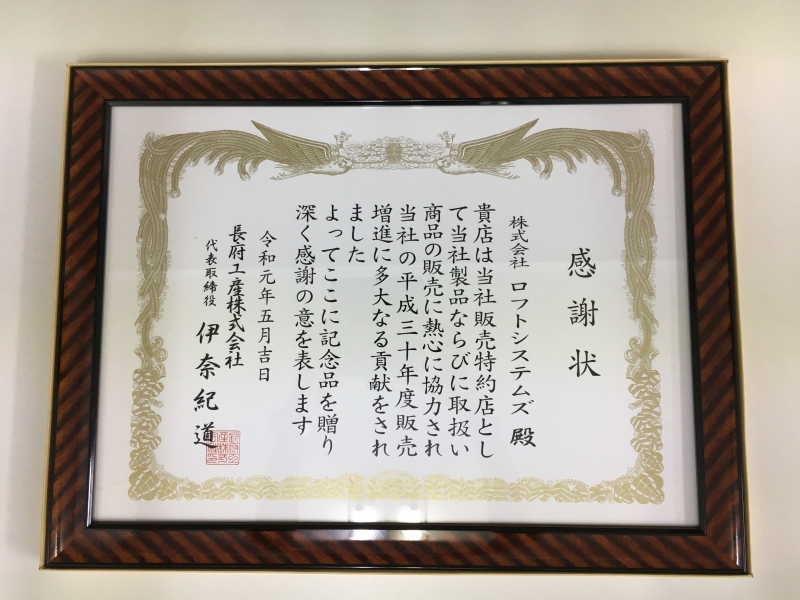 感謝状
株式会社 ロフトシステムズ 殿
貴店は当社販売特約店とし
て当社製品ならびに取扱い
商品の販売に熱心に協力され
当社の平成三十年度販売
増進に多大なる貢献をされ
ました
よってここに記念品を贈り
深く感謝の意を表します
令和元年五月吉日
長府工産株式会社
代表取締役 伊奈紀道